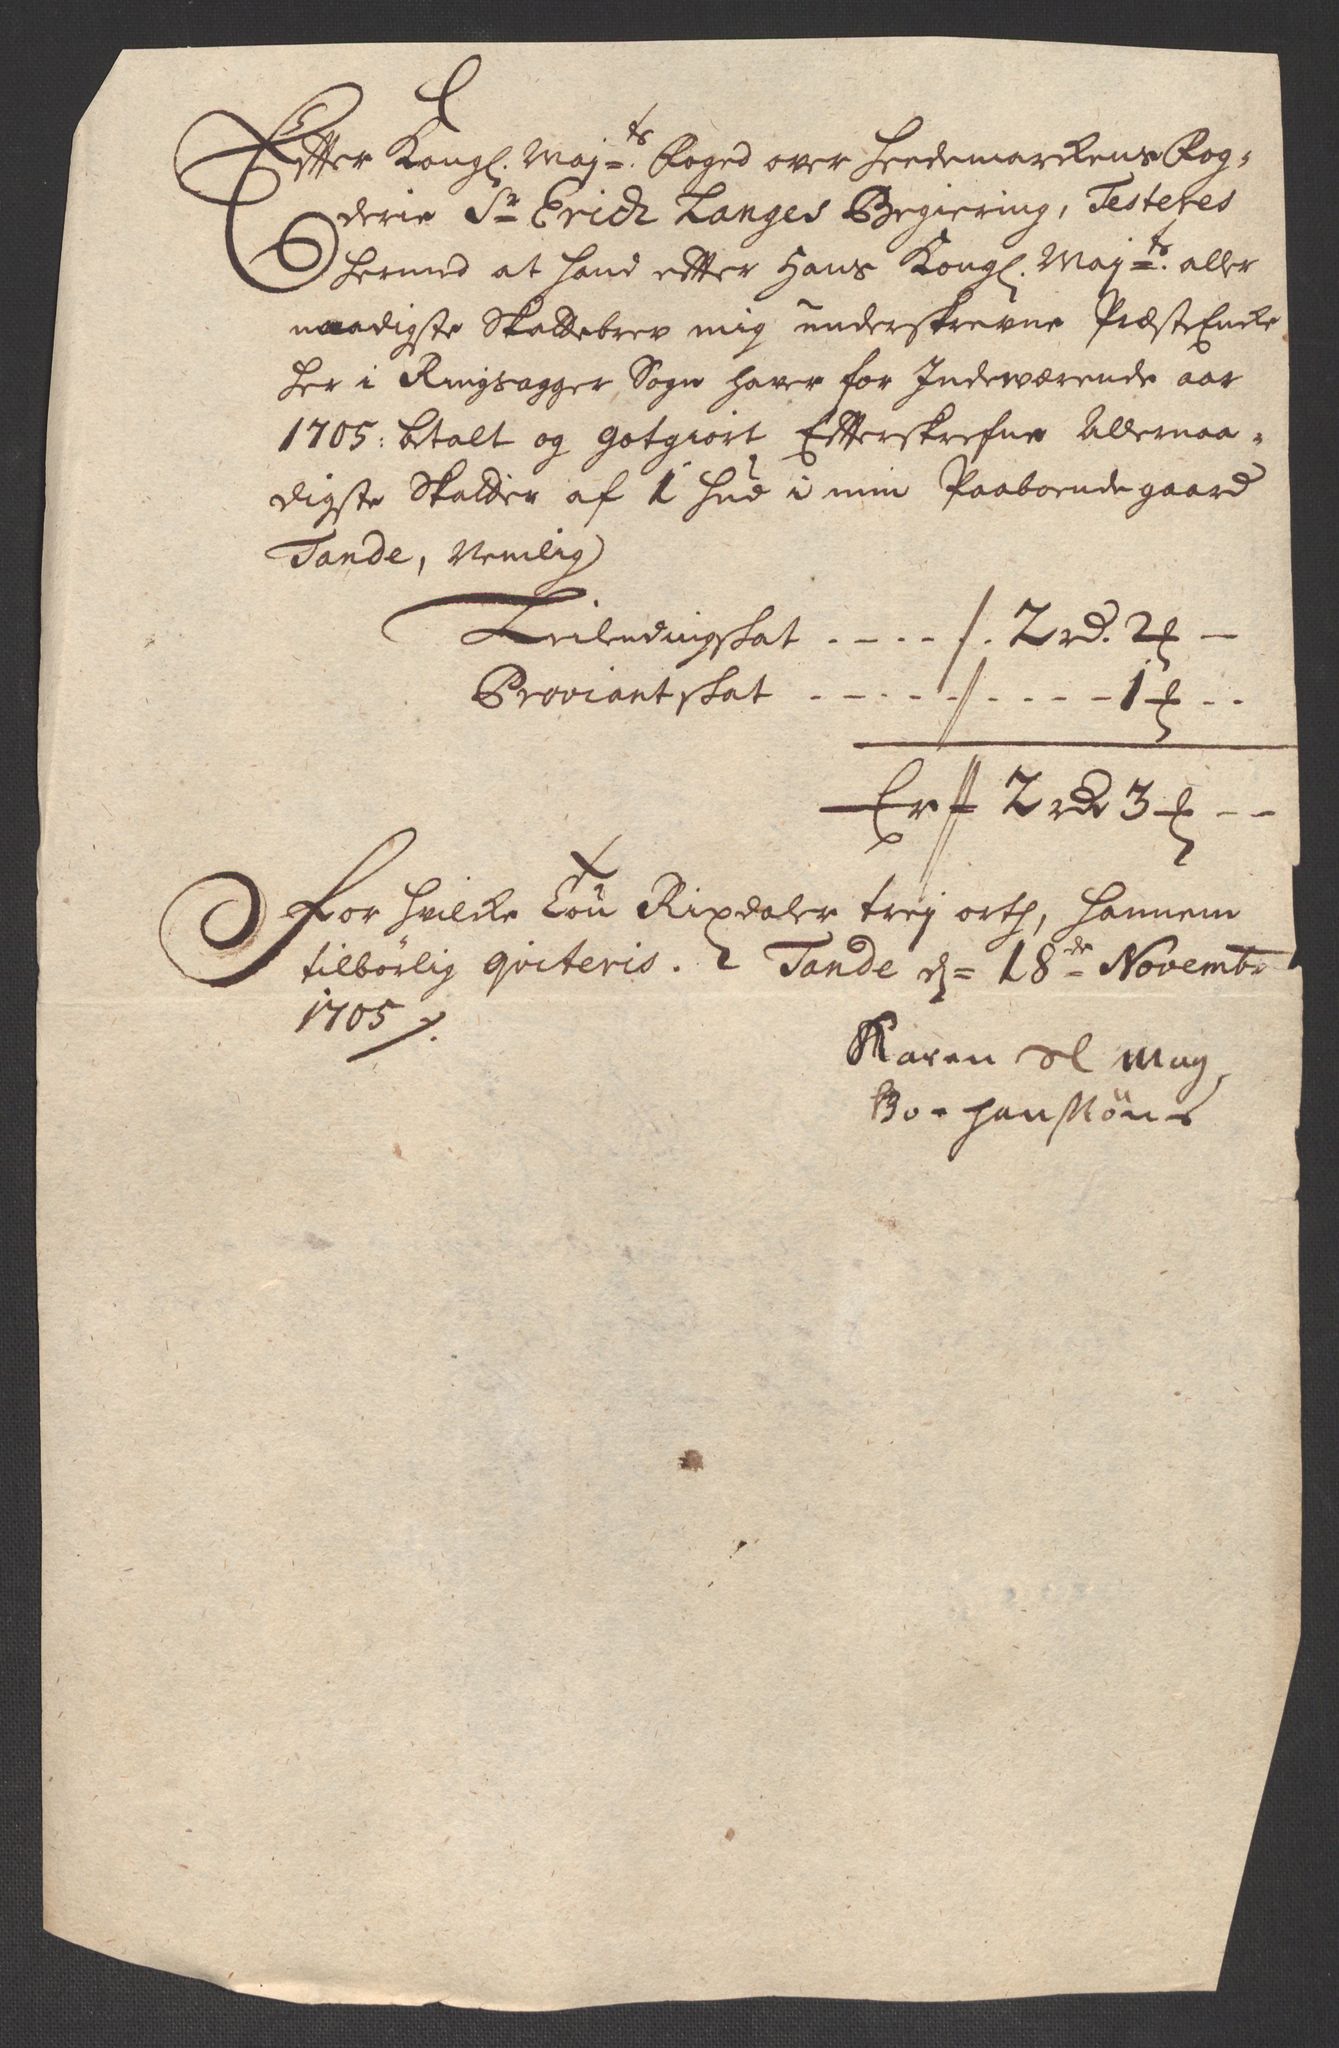 Efter Kongl. Maj=ts. Foged over Heedemarckens Fog-
derie Sr Erich Langes Begiering, Testeres
hermed at hand efter Hans Kongl. Maj=ts. aller
naadigste Skattebrev mig underskrevne PræsteEncke
her i Ringsagger Sogn haver for Indeværende aar
1705: betalt og gotgiort Efterskrefne Allernaa-
digste Skatter af 1 hud i min Paaboende gaard
Tande, Nemlig
Leilendingskat . - - . - - . 2 rd. 2 ort -
Proviantskat - - - . - - - - - 1 ort - -
Er 2 rd 3 ort - -
For hvilcke Tou Rixdaler trej orth, hannem
tilbørlig qviteris. Tande d= 18de Novembr
1705
Karen Sl Mag